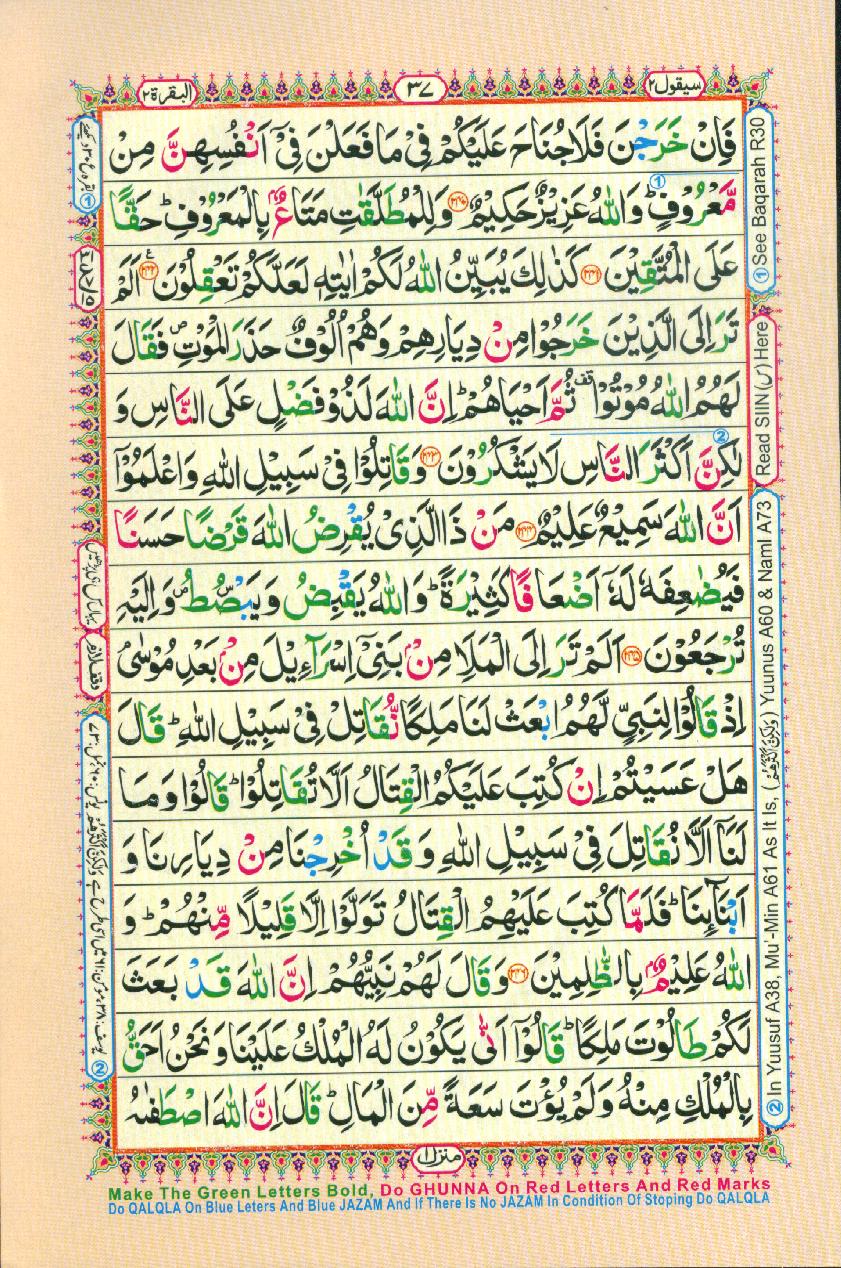 سيقول ٢
٣٧
البقرة ٢
فَاِنْ خَرَجْنَ فَلَا جُنَاحَ عَلَيْكُمْ فِيْ مَا فَعَلْنَ فِيْٓ اَنْفُسِهِنَّ مِنْ
مَّعْرُوْفٍؕ ① وَاللّٰهُ عَزِيْزٌ حَكِيْمٌ ﴿۲۴۰﴾ وَلِلْمُطَلَّقٰتِ مَتَاعٌۢ بِالْمَعْرُوْفِؕ حَقًّا
عَلَى الْمُتَّقِيْنَ ﴿۲۴۱﴾ كَذٰلِكَ يُبَيِّنُ اللّٰهُ لَكُمْ اٰيٰتِهٖ لَعَلَّكُمْ تَعْقِلُوْنَ ﴿۲۴۲﴾ ع اَلَمْ
تَرَ اِلَى الَّذِيْنَ خَرَجُوْا مِنْ دِيَارِهِمْ وَهُمْ اُلُوْفٌ حَذَرَ الْمَوْتِ۪ فَقَالَ
لَهُمُ اللّٰهُ مُوْتُوْا قف ثُمَّ اَحْيَاهُمْؕ اِنَّ اللّٰهَ لَذُوْ فَضْلٍ عَلَى النَّاسِ وَ
② لٰكِنَّ اَكْثَرَ النَّاسِ لَا يَشْكُرُوْنَ ﴿۲۴۳﴾ وَقَاتِلُوْا فِيْ سَبِيْلِ اللّٰهِ وَاعْلَمُوْٓا
اَنَّ اللّٰهَ سَمِيْعٌ عَلِيْمٌ ﴿۲۴۴﴾ مَنْ ذَا الَّذِيْ يُقْرِضُ اللّٰهَ قَرْضًا حَسَنًا
فَيُضٰعِفَهٗ لَهٗٓ اَضْعَافًا كَثِيْرَةًؕ وَاللّٰهُ يَقْبِضُ وَيَبْصُۜطُ۪ وَاِلَيْهِ
تُرْجَعُوْنَ ﴿۲۴۵﴾ اَلَمْ تَرَ اِلَى الْمَلَاِ مِنْۢ بَنِيْٓ اِسْرَآءِيْلَ مِنْۢ بَعْدِ مُوْسٰىۘ
اِذْ قَالُوْا لِنَبِيٍّ لَّهُمُ ابْعَثْ لَنَا مَلِكًا نُّقَاتِلْ فِيْ سَبِيْلِ اللّٰهِؕ قَالَ
هَلْ عَسَيْتُمْ اِنْ كُتِبَ عَلَيْكُمُ الْقِتَالُ اَلَّا تُقَاتِلُوْاؕ قَالُوْا وَمَا
لَنَآ اَلَّا نُقَاتِلَ فِيْ سَبِيْلِ اللّٰهِ وَقَدْ اُخْرِجْنَا مِنْ دِيَارِنَا وَ
اَبْنَآئِنَاؕ فَلَمَّا كُتِبَ عَلَيْهِمُ الْقِتَالُ تَوَلَّوْا اِلَّا قَلِيْلًا مِّنْهُمْؕ وَ
اللّٰهُ عَلِيْمٌۢ بِالظّٰلِمِيْنَ ﴿۲۴۶﴾ وَقَالَ لَهُمْ نَبِيُّهُمْ اِنَّ اللّٰهَ قَدْ بَعَثَ
لَكُمْ طَالُوْتَ مَلِكًاؕ قَالُوْٓا اَنّٰى يَكُوْنُ لَهُ الْمُلْكُ عَلَيْنَا وَنَحْنُ اَحَقُّ
بِالْمُلْكِ مِنْهُ وَلَمْ يُؤْتَ سَعَةً مِّنَ الْمَالِؕ قَالَ اِنَّ اللّٰهَ اصْطَفٰىهُ
منزل ١
① See Baqarah R30
Read SIIN (س) Here
② In Yuusuf A38, Mu'-Min A61 As It Is, (وَلٰكِنَّ اَكْثَرَهُمْ) Yuunus A60 & Naml A73
وقف لازم
Make The Green Letters Bold, Do GHUNNA On Red Letters And Red Marks
Do QALQLA On Blue Leters And Blue JAZAM And If There Is No JAZAM In Condition Of Stoping Do QALQLA